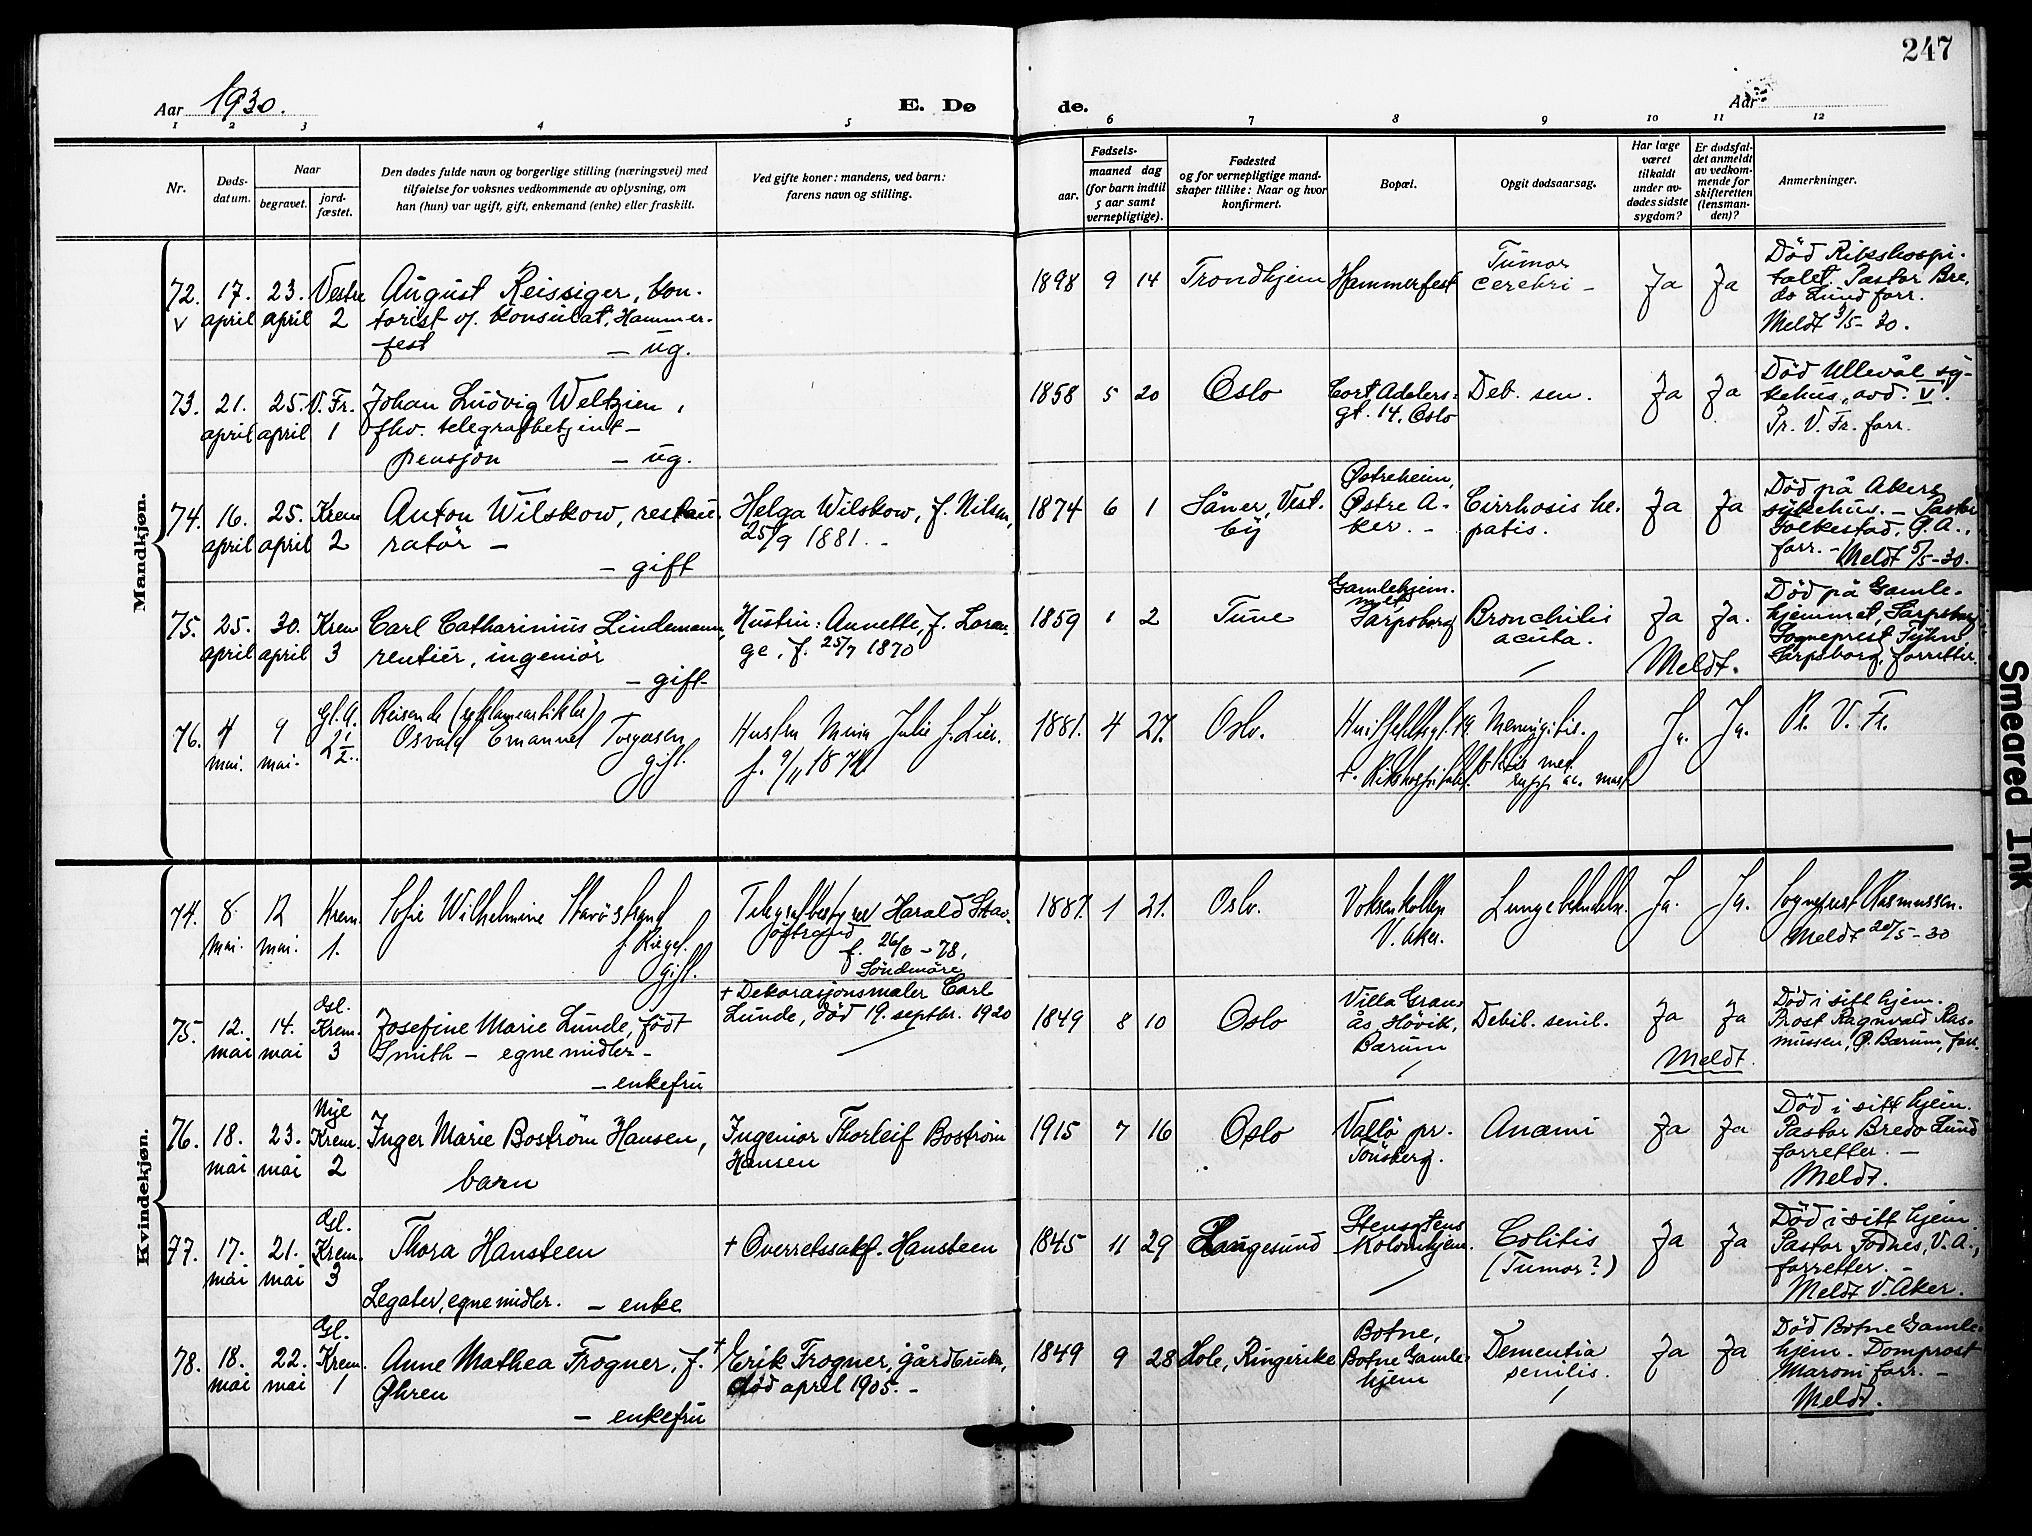 247
Aar 1930.
E. Dø
de.
Aar
1 2 3 4 5 6 7 8 9 10 11 12
Nr.
Døds-
datum.
Naar
begravet.
jord-
fæstet.
Den dødes fulde navn og borgerlige stilling (næringsvei) med
tilføielse for voksnes vedkommende av oplysning, om
han (hun) var ugift, gift, enkemand (enke) eller fraskilt.
Ved gifte koner: mandens, ved barn:
farens navn og stilling.
Fødsels-
aar.
maaned dag
(for barn indtil
5 aar samt
vernepligtige).
Fødested
og for vernepligtige mand-
skaper tillike: Naar og hvor
konfirmert.
Bopæl.
Opgit dødsaarsag.
Har læge
været
tilkaldt
under av-
dødes sidste
sygdom?
Er dødsfal-
det anmeldt
av vedkom-
mende for
skifteretten
(lensman-
den)?
Anmerkninger.
Mandkjøn.
72. 17. april 23. april Vestre 2
v
August Reissiger, kon-
torist v/ konsulat, Hammer-
fest – ug.
1898 9 14 Trondhjem Hammerfest
Tumor
cerebri –
Ja Ja
Død Rikshospi-
talet. Pastor Bre-
do Lund forr.
Meldt 3/5-30.
73. 21. april 25. april V. Fr. 1
Johan Ludvig Weltzien,
fhv. telegrafbetjent –
pensjon – ug.
1858 5 20 Oslo
Cort Adelers-
gt. 14, Oslo
Deb. sen.
Ja Ja
Død Ullevål sy-
kehus, avd. V.
Pr. V. Fr. forr.
74. 16. april 25. april Krem 2
Anton Wilskow, restau-
ratør –
– gift
Helga Wilskow, f. Nilsen,
25/9 1881. –
1874 6 1
Såner, Vest-
by
Østreheim,
Østre A-
ker. –
Cirrhosis he-
patis.
Ja Ja
Død på Akers
sykehus. – Pastor
Solbestad, Ø.A.,
forr. – Meldt 5/5-30.
75. 25. april 30. april Krem 3
Carl Catharinus Lindemann,
rentier, ingeniør
– gift –
Hustru: Annette, f. Loran-
ge, f. 25/7 1870
1859 1 2 Tune
Gamlehjem-
met
Sarpsborg
Bronchitis
acuta.
Ja Ja.
Meldt.
Død på Gamle-
hjemmet, Sarpsborg
Sogneprest
Sarpsborg, forretter.
76. 4 mai. 9 mai.
Gl. A.
Reisende (reklameartikler)
Osvald Emanuel Torgersen
gift.
Hustru Julie f. Lier.
f. 9/11 1874.
1881. 4 27. Oslo.
+ Rikshospitalet.
Ja. Ja.
Pr. V. Fr.
Kvindekjøn.
74. 8 mai. 12 mai. Krem. 1.
Sofie Wilhelmine Stavøstrand
gift.
Telegrafbestyrer Harald Stav-
østrand
f. 26/6-78,
Søndmøre
1887. 1 21. Oslo.
Voksenkollen
V. Aker.
Ja. Ja.
Sogneprest Rasmussen.
Meldt 20/5-30
75. 12. mai 14. mai Gl. Krem. 3
Josefine Marie Lunde, født
Smith – egne midler –
– enkefru
+ Dekorasjonsmaler Carl
Lunde, død 19. septbr. 1920
1849 8 10 Oslo
Villa Gran-
ås, Høvik,
Bærum
Debil. senil.
Ja Ja
Meldt.
Død i sitt hjem.
Prost Ragnvald Ras-
mussen, Ø. Bærum, forr.
76. 18. mai 23. mai Nye Krem. 2
Inger Marie Boström Hansen,
barn
Ingeniør Thorleif Boström
Hansen
1915 7 16 Oslo
Vallø pr.
Tønsberg.
Anæmi
Ja Ja
Død i sitt hjem.
Pastor Bredo Lund
forretter. –
Meldt.
77. 17. mai 21. mai Gl. Krem. 3
Thora Hansteen
Legater, egne midler. – enke
+ Overretssakf. Hansteen
1845 11 29 Langesund
Colitis
(Tumor?)
Ja Ja
Død i sitt hjem
Pastor Fodnes, V. A.,
forretter. –
Meldt V. Aker.
78. 18. mai 22. mai Gl. Krem. 1
Anne Mathea Frogner, f.
Øhren
– enkefru
+ Erik Frogner, gårdbruker,
død april 1905. –
1849 9 28 Hole, Ringerike
Botne,
Botne Gamle-
hjem
Dementia
senilis.
Ja Ja
Død Botne Gamle-
hjem. Domprost
Maroni forr. –
Meldt.
Smeared Ink